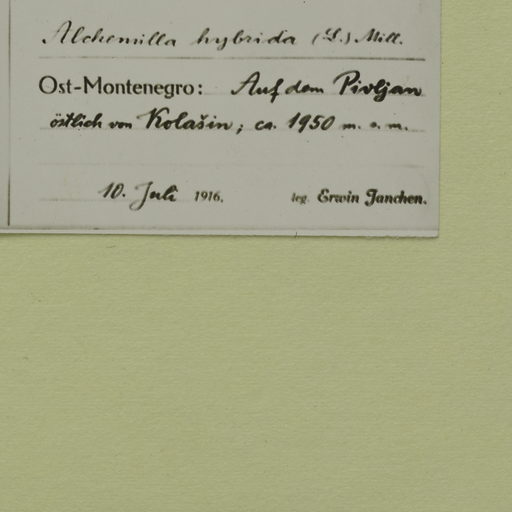 Alchemilla hybrida (L.) Mill.
Ost-Montenegro: Auf dem Pivljan
östlich von Kolašin; ca. 1950 m. s. m.
10. Juli 1916. leg. Erwin Janchen.